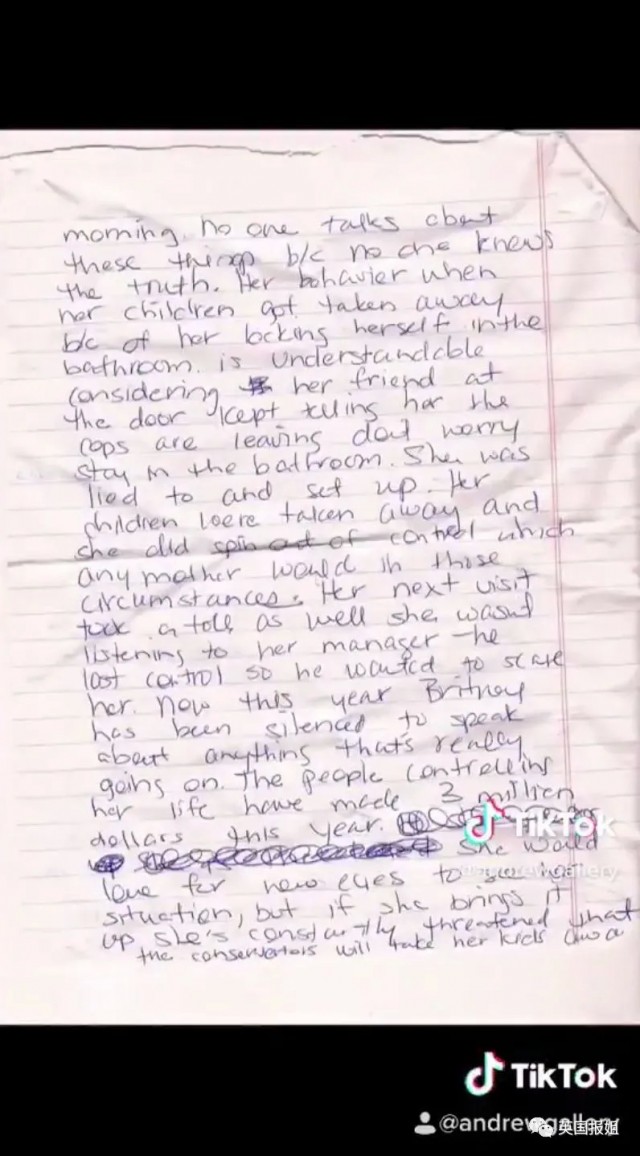 morning. no one talks about
these things b/c no one knows
the truth. Her behavier when
her children got taken away
b/c of her locking herself in the
bathroom. is understandable
considering her friend at
the door kept telling her the
cops are leaving dont worry
stay in the bathroom. She was
lied to and set up. Her
children were taken away and
she did spin out of control which
any mother would in those
circumstances. Her next visit
took a toll as well she wasnt
listening to her manager - he
lost control so he wanted to scare
her. Now this year Britney
has been silenced to speak
about anything thats really
going on. The people controlling
her life have made 3 million
dollars this year.
She would
love for new eyes to see
situation, but if she brings it
up she's constantly threatened that
the conservators will take her kids awa
TikTok
@andrewgallery
TikTok
@andrewgallery
英国报姐